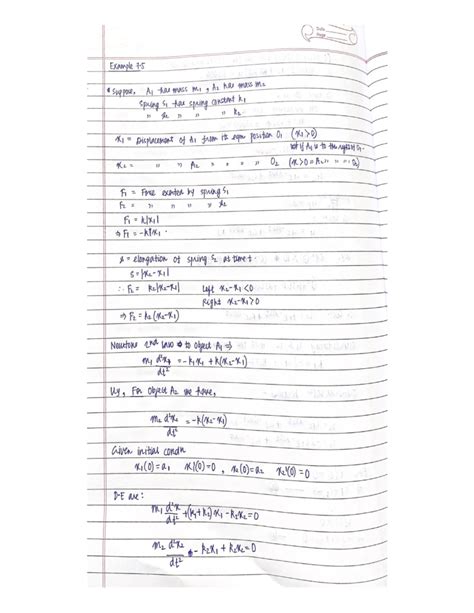 Date
Page
Example 7.5
* Suppose, A₁ has mass m₁, A₂ has mass m₂
Spring S₁ has spring constant k₁
" S₂ " " " k₂.
x₁ = Displacement of A₁ from its eqm position O₁ (x₁>0)
if A₁ is to the right of O₁.
x₂ = " " A₂ " " " " O₂ (x>0 " A₂ " " " O₂)
F₁ = Force exerted by spring S₁
F₂ = " " " " S₂
F₁ = k|x₁|
⇒ F₁ = -k₁x₁.
s = elongation of spring S₂ at time t.
s = |x₂-x₁|
∴ F₂ = k₂|x₂-x₁| Left x₂-x₁<0
Right x₂-x₁>0
⇒ F₂ = k₂(x₂-x₁)
Newtons 2nd law to object A₁ ⇒
m₁ d²x₁/dt² = -k₁x₁ + k(x₂-x₁)
lly, For object A₂ we have,
m₂ d²x₂/dt² = -k(x₂-x₁)
Given initial condn
x₁(0)=a₁ x₁'(0)=0 , x₂(0)=a₂ x₂'(0)=0
D.E are:
m₁ d²x/dt² + (k₁+k₂)x₁ - k₂x₂=0
m₂ d²x₂/dt² - k₂x₁ + k₂x₂=0